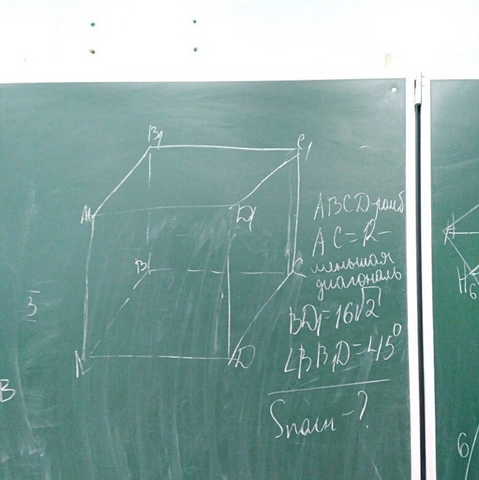 B₁
C₁
A₁
D₁
B
C
A
D
3
B
ABCD-ромб
AC=12-
меньшая
диагональ
BD₁=16√2
∠BB₁D=45°
Sполн-?
H₆
6